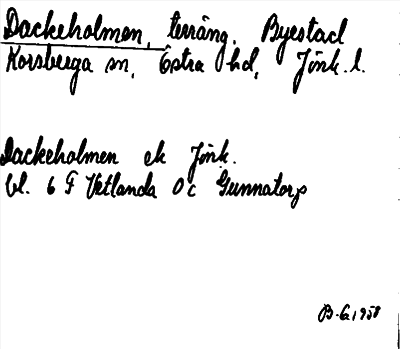 Dackeholmen, terräng. Byestad
Korsberga sn, Östra hd, Jönk. l.
Dackeholmen ek Jönk.
bl. 6 F Vetlanda 0 c Gunnatorp
B-G, 1958